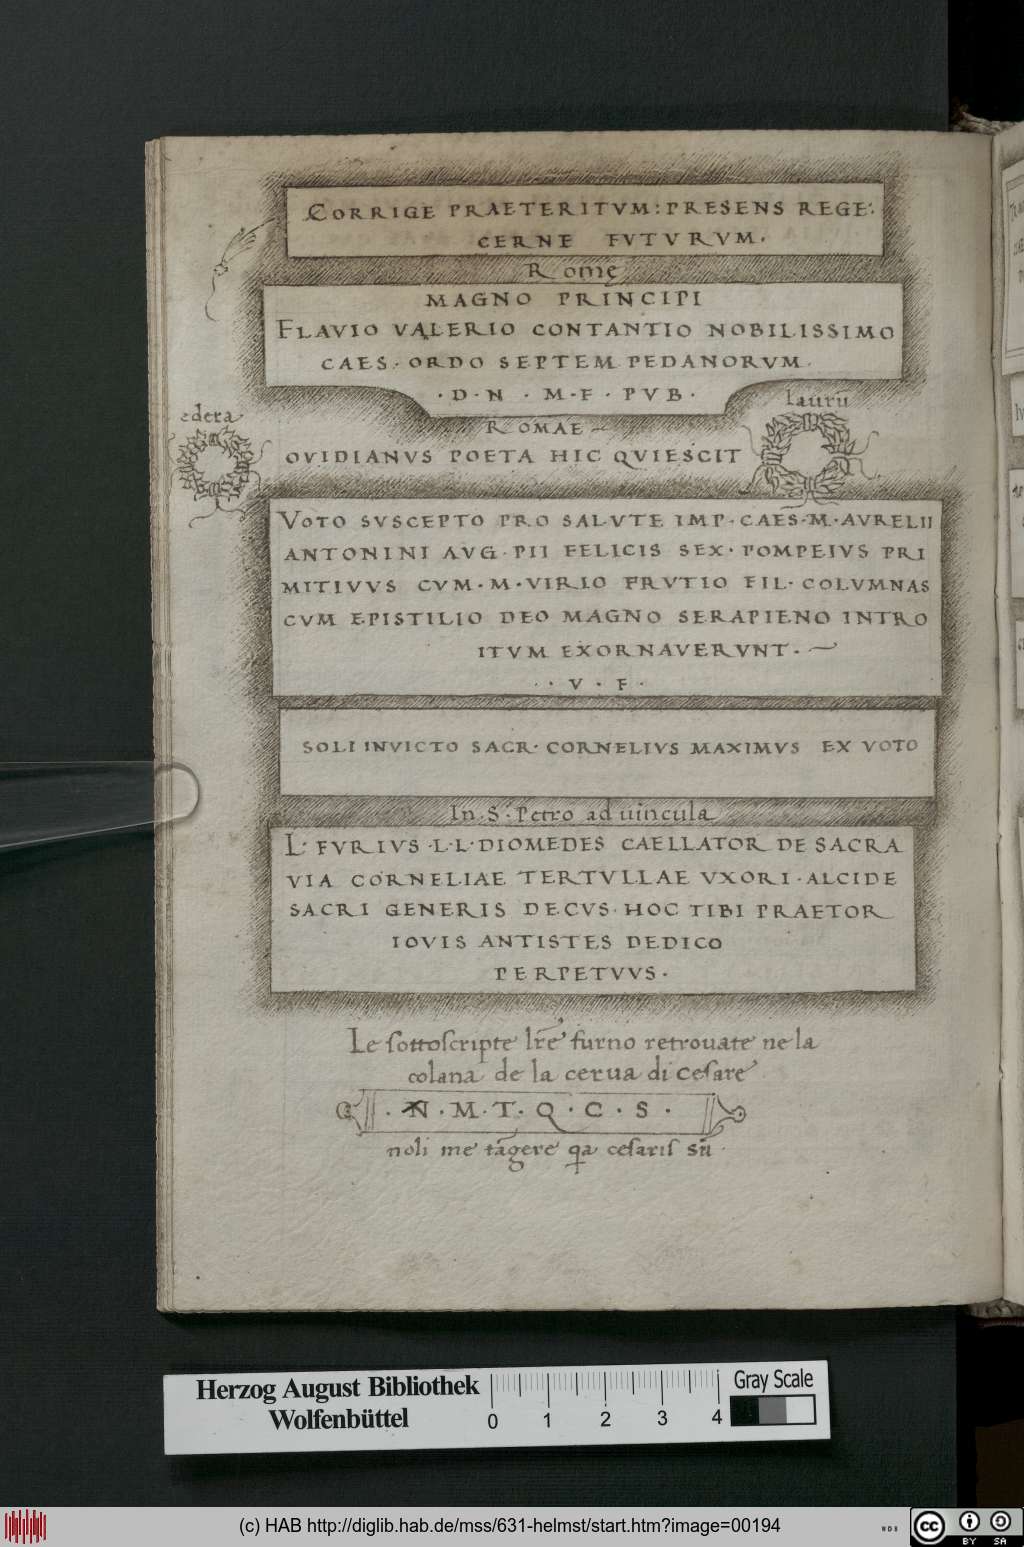 CORRIGE PRAETERITVM: PRESENS REGE:
CERNE FVTVRVM.
Romę
MAGNO PRINCIPI
FLAVIO VALERIO CONTANTIO NOBILISSIMO
CAES. ORDO SEPTEM PEDANORVM.
. D. N . M. F. PVB.
edera
lauru
ROMAE
OVIDIANVS POETA HIC QVIESCIT
VOTO SVSCEPTO PRO SALVTE IMP. CAES. M. AVRELII
ANTONINI AVG. PII FELICIS SEX. POMPEIVS PRI
MITIVVS CVM. M. VIRIO FRVTIO FIL. COLVMNAS
CVM EPISTILIO DEO MAGNO SERAPI ENO INTRO
ITVM EXORNAVERVNT.
. . V . F .
SOLI INVICTO SACR. CORNELIVS MAXIMVS EX VOTO
In. S. Petro ad uincula
L. FVRIVS . L. L. DIOMEDES CAELLATOR DE SACRA
VIA CORNELIAE TERTVLLAE VXORI. ALCIDE
SACRI GENERIS DECVS. HOC TIBI PRAETOR
IOVIS ANTISTES DEDICO
PERPETVVS.
Le sottoscripte lre furno retrouate ne la
colana de la cerua di Cesare
. N. M. T. Q. C. S.
noli me tãgere qa cesaris sũ.
Herzog August Bibliothek
Wolfenbüttel
0 1 2 3 4
Gray Scale
(c) HAB http://diglib.hab.de/mss/631-helmst/start.htm?image=00194
WDB
cc BY SA